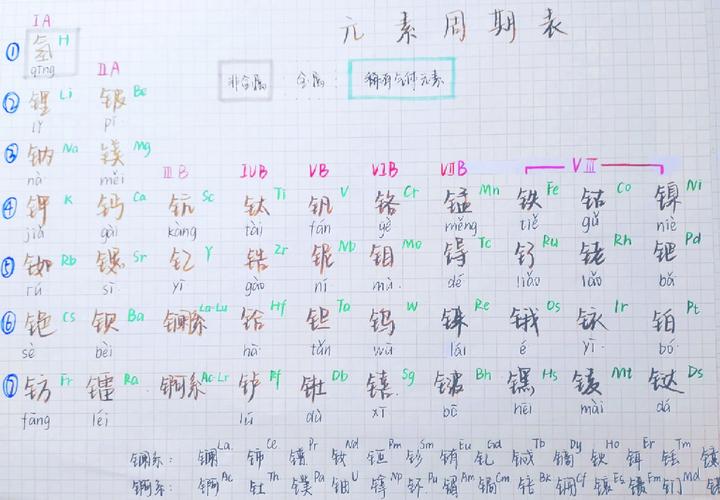 元素周期表
IA
① 氢 H
qīng
IIA
非金属 金属 稀有气体元素
② 锂 Li 铍 Be
lǐ pí
③ 钠 Na 镁 Mg
nà měi
IIIB IVB VB VIB VIIB VIII
④ 钾 K 钙 Ca 钪 Sc 钛 Ti 钒 V 铬 Cr 锰 Mn 铁 Fe 钴 Co 镍 Ni
jiǎ gài kàng tài fán gè měng tiě gǔ niè
⑤ 铷 Rb 锶 Sr 钇 Y 锆 Zr 铌 Nb 钼 Mo 锝 Tc 钌 Ru 铑 Rh 钯 Pd
rú sī yǐ gào ní mù dé liǎo lǎo bǎ
⑥ 铯 Cs 钡 Ba 镧系 La-Lu 铪 Hf 钽 Ta 钨 W 铼 Re 锇 Os 铱 Ir 铂 Pt
sè bèi hā tǎn wū lái é yī bó
⑦ 钫 Fr 镭 Ra 锕系 Ac-Lr 𬬻 Rf 𬭊 Db 𬭳 Sg 𬭛 Bh 𬭶 Hs 鿏 Mt 𫟼 Ds
fāng léi lú dù xǐ bō hēi mài dá
镧系: 镧 La 铈 Ce 镨 Pr 钕 Nd 钷 Pm 钐 Sm 铕 Eu 钆 Gd 铽 Tb 镝 Dy 钬 Ho 铒 Er 铥 Tm
锕系: 锕 Ac 钍 Th 镤 Pa 铀 U 镎 Np 钚 Pu 镅 Am 锔 Cm 锫 Bk 锎 Cf 锿 Es 镄 Fm 钔 Md